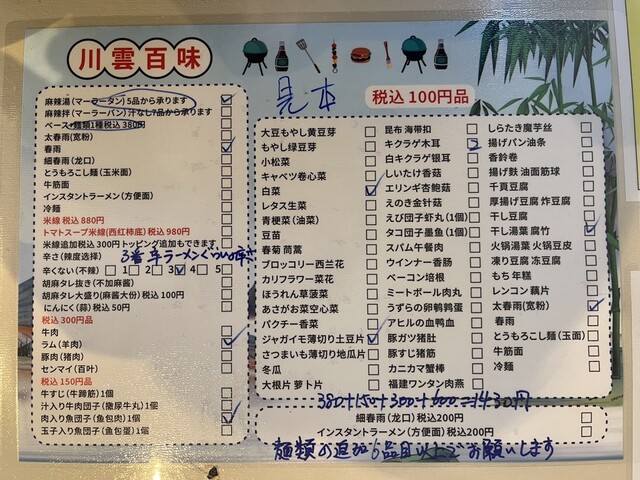 川雲百味
見本
税込 100円品
麻辣湯(マーラータン)5品から承ります
麻辣拌(マーラーバン)汁なし7品から承ります
ベース+麺類1種税込 380円
太春雨(宽粉)
春雨
細春雨(龙口)
とうもろこし麺(玉米面)
牛筋面
インスタントラーメン(方便面)
冷麺
米線 税込 880円
トマトスープ米線(西红柿底)税込 980円
米線追加税込300円 トッピング追加もできます
辛さ(辣度选择)
3番 辛ラーメンぐらいの辛さ
辛くない(不辣) 1 2 3 4 5
胡麻タレ抜き(不加麻酱)
胡麻タレ大盛り(麻酱大份)税込 100円
にんにく(蒜)税込 50円
税込 300円品
牛肉
ラム(羊肉)
豚肉(猪肉)
センマイ(百叶)
税込 150円品
牛すじ(牛蹄筋)1個
汁入り牛肉団子(撒尿牛丸)1個
肉入り魚団子(鱼包肉)1個
玉子入り魚団子(鱼包蛋)1個
大豆もやし黄豆芽
もやし绿豆芽
小松菜
キャベツ卷心菜
白菜
レタス生菜
青梗菜(油菜)
豆苗
春菊 茼蒿
ブロッコリー西兰花
カリフラワー菜花
ほうれん草菠菜
あさがお菜空心菜
パクチー香菜
ジャガイモ薄切り土豆片
さつまいも薄切り地瓜片
冬瓜
大根片 萝卜片
昆布 海带扣
キクラゲ木耳
白キクラゲ银耳
しいたけ香菇
エリンギ杏鲍菇
えのき金针菇
えび団子虾丸(1個)
タコ団子墨鱼(1個)
スパム午餐肉
ウインナー香肠
ベーコン培根
ミートボール肉丸
うずらの卵鹌鹑蛋
アヒルの血鸭血
豚ガツ猪肚
豚すじ猪筋
カニカマ蟹棒
福建ワンタン肉燕
しらたき魔芋丝
揚げパン油条
香鈴卷
揚げ麩 油面筋球
千頁豆腐
厚揚げ豆腐 炸豆腐
干し豆腐
干し湯葉 腐竹
火锅湯葉 火锅豆皮
凍り豆腐 冻豆腐
もち 年糕
レンコン 藕片
太春雨(宽粉)
春雨
とうもろこし麺(玉面)
牛筋面
冷麺
380+150+300+600=1430円
細春雨(龙口)税込200円
インスタントラーメン(方便面)税込200円
麺類の追加6品目以上でお願いします